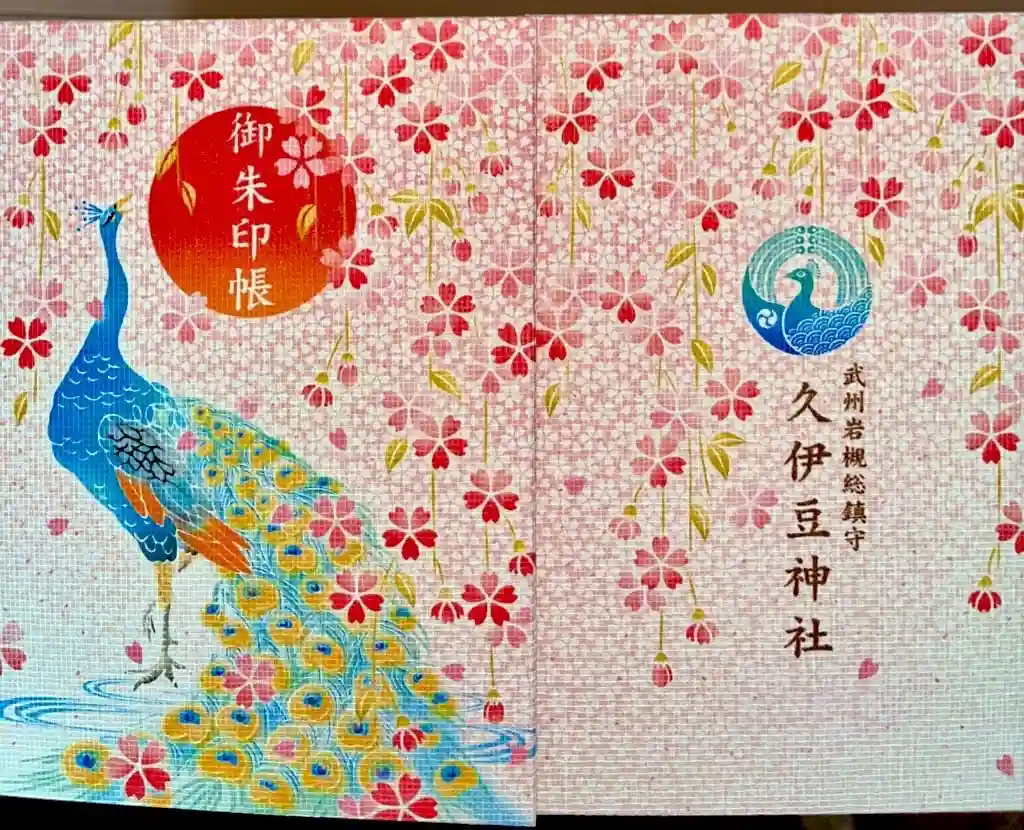 御朱印帳
武州岩槻総鎮守
久伊豆神社